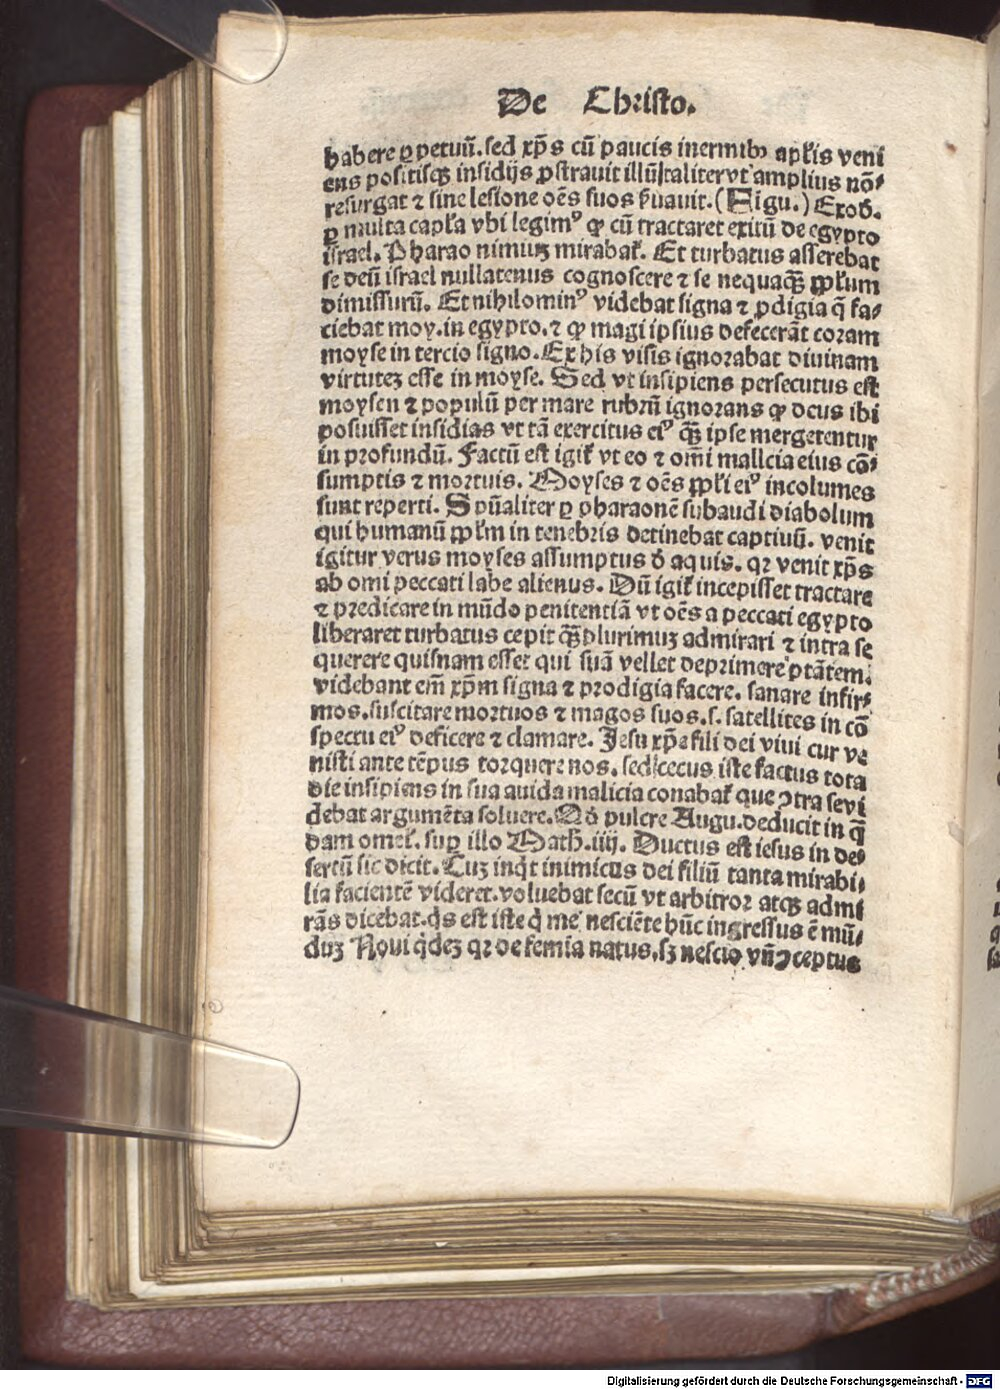 De Christo.
habere ꝑpetuū. sed xp̄s cū paucis inermibꝰ apl̄is veni
ens positisqꝫ insidijs ꝓstrauit illū taliter vt amplius nō⸗
resurgat ⁊ sine lesione oēs suos ẜuauit. (Figu.) Exod̄.
ꝑ multa capl̄a vbi legimꝰ ꝙ cū tractaret exitū de egypto
israel. Pharao nimiuꝫ mirabat̄. Et turbatus asserebat
se deū israel nullatenus cognoscere ⁊ se nequaqꝫ̄ ppl̄um
dimissurū. Et nihilominꝰ videbat signa ⁊ ꝓdigia q̄ fa⸗
ciebat moy. in egypto. ⁊ ꝙ magi ipsius defecerāt coram
moyse in tercio signo. Ex his visis ignorabat diuinam
virtuteꝫ esse in moyse. Sed vt insipiens persecutus est
moysen ⁊ populū per mare rubrū ignorans ꝙ deus ibi
posuisset insidias vt tā exercitus eiꝰ qꝫ̄ ipse mergerentur
in profundū. Factū est igit̄ vt eo ⁊ om̄i malicia eius cō⸗
sumptis ⁊ mortuis. Moyses ⁊ oēs ppl̄i eiꝰ incolumes
sunt reperti. Spūaliter ꝑ pharaonē subaudi diabolum
qui humanū ppl̄m in tenebris detinebat captiuū. venit
igitur verus moyses assumptus d̄ aquis. qꝛ venit xp̄s
ab omi peccati labe alienus. Dū igit̄ incepisset tractare
⁊ predicare in mūdo penitentiā vt oēs a peccati egypto
liberaret turbatus cepit qꝫ̄plurimuꝫ admirari ⁊ intra se
querere quisnam esset qui suā vellet deprimere ptātem.
videbant em̄ xp̄m signa ⁊ prodigia facere. sanare infir⸗
mos. suscitare mortuos ⁊ magos suos. s. satellites in cō
spectu eiꝰ deficere ⁊ clamare. Jesu xp̄e fili dei viui cur ve
nisti ante tēpus torquere nos. sed cecus iste factus tota
die insipiens in sua auida malicia conabat̄ que ↄtra se vi
debat argumēta soluere. Qd̄ pulcre Augu. deducit in q̄
dam omel̄. suꝑ illo Math. iiij. Ductus est iesus in de⸗
sertū sic dicit. Cuꝫ inqͥt inimicus dei filiū tanta mirabi⸗
lia facientē videret. voluebat secū vt arbitror atqꝫ admi
rās dicebat. qͥs est iste qͥ me nesciēte hūc ingressus ē mū⸗
duꝫ Noui qͥdeꝫ qꝛ de femia natus, sꝫ nescio vn̄ ↄceptus
Digitalisierung gefördert durch die Deutsche Forschungsgemeinschaft - DFG